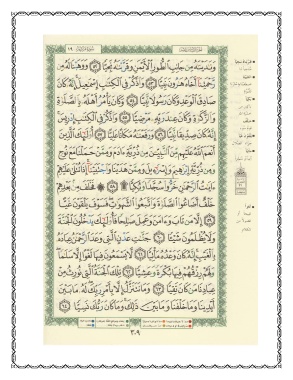 وَنَـٰدَيْنَـٰهُ مِن جَانِبِ ٱلطُّورِ ٱلْأَيْمَنِ وَقَرَّبْنَـٰهُ نَجِيًّا ٥٢ وَوَهَبْنَا لَهُ مِن
رَّحْمَتِنَآ أَخَاهُ هَـٰرُونَ نَبِيًّا ٥٣ وَٱذْكُرْ فِى ٱلْكِتَـٰبِ إِسْمَـٰعِيلَ إِنَّهُ كَانَ
صَادِقَ ٱلْوَعْدِ وَكَانَ رَسُولًا نَّبِيًّا ٥٤ وَكَانَ يَأْمُرُ أَهْلَهُ بِٱلصَّلَوٰةِ
وَٱلزَّكَوٰةِ وَكَانَ عِندَ رَبِّهِ مَرْضِيًّا ٥٥ وَٱذْكُرْ فِى ٱلْكِتَـٰبِ إِدْرِيسَ
إِنَّهُ كَانَ صِدِّيقًا نَّبِيًّا ٥٦ وَرَفَعْنَـٰهُ مَكَانًا عَلِيًّا ٥٧ أُو۟لَـٰٓئِكَ ٱلَّذِينَ
أَنْعَمَ ٱللَّهُ عَلَيْهِم مِّنَ ٱلنَّبِيِّـۧنَ مِن ذُرِّيَّةِ ءَادَمَ وَمِمَّنْ حَمَلْنَا مَعَ نُوحٍ
وَمِن ذُرِّيَّةِ إِبْرَٰهِيمَ وَإِسْرَٰٓءِيلَ وَمِمَّنْ هَدَيْنَا وَٱجْتَبَيْنَآ إِذَا تُتْلَىٰ عَلَيْهِمْ
ءَايَـٰتُ ٱلرَّحْمَـٰنِ خَرُّوا۟ سُجَّدًا وَبُكِيًّا ٥٨ فَخَلَفَ مِنۢ بَعْدِهِمْ
خَلْفٌ أَضَاعُوا۟ ٱلصَّلَوٰةَ وَٱتَّبَعُوا۟ ٱلشَّهَوَٰتِ فَسَوْفَ يَلْقَوْنَ غَيًّا
٥٩ إِلَّا مَن تَابَ وَءَامَنَ وَعَمِلَ صَـٰلِحًا فَأُو۟لَـٰٓئِكَ يَدْخُلُونَ ٱلْجَنَّةَ
وَلَا يُظْلَمُونَ شَيْـًٔا ٦٠ جَنَّـٰتِ عَدْنٍ ٱلَّتِى وَعَدَ ٱلرَّحْمَـٰنُ عِبَادَهُ
بِٱلْغَيْبِ إِنَّهُ كَانَ وَعْدُهُ مَأْتِيًّا ٦١ لَّا يَسْمَعُونَ فِيهَا لَغْوًا إِلَّا سَلَـٰمًا
وَلَهُمْ رِزْقُهُمْ فِيهَا بُكْرَةً وَعَشِيًّا ٦٢ تِلْكَ ٱلْجَنَّةُ ٱلَّتِى نُورِثُ مِنْ
عِبَادِنَا مَن كَانَ تَقِيًّا ٦٣ وَمَا نَتَنَزَّلُ إِلَّا بِأَمْرِ رَبِّكَ لَهُ مَا بَيْنَ
أَيْدِينَا وَمَا خَلْفَنَا وَمَا بَيْنَ ذَٰلِكَ وَمَا كَانَ رَبُّكَ نَسِيًّا ٦٤
٣٠٩